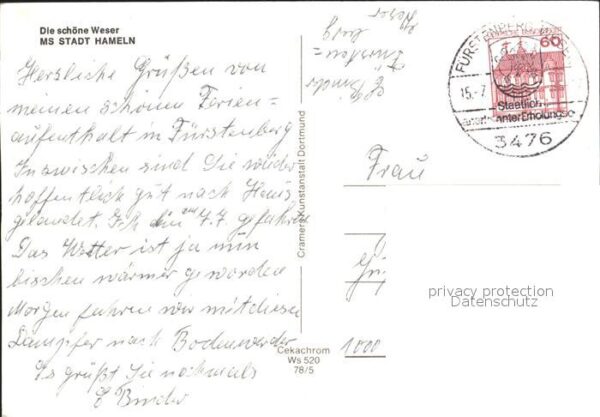 Die schöne Weser
MS STADT HAMELN
Herzliche Grüßen von
meinen schönen Ferien=
aufenthalt in Fürstenberg
Inzwischen sind Sie wieder
hoffentlich gut nach Haus
gelandet. Ich bin am 7.7. gefahren
Das Wetter ist ja nun
bischen wärmer geworden
Morgen fahren wir mit diesen
Dampfer nach Bodenwerder
Es grüßt Sie nochmals
E Binder
Cramers Kunstanstalt Dortmund
Cekachrom
Ws 520
78/5
E Binder
Fürsten=
berg
Weser
FÜRSTENBERG
60
15.-7
Staatlich
anerkannter Erholungso
3476
Frau
1000
privacy protection
Datenschutz